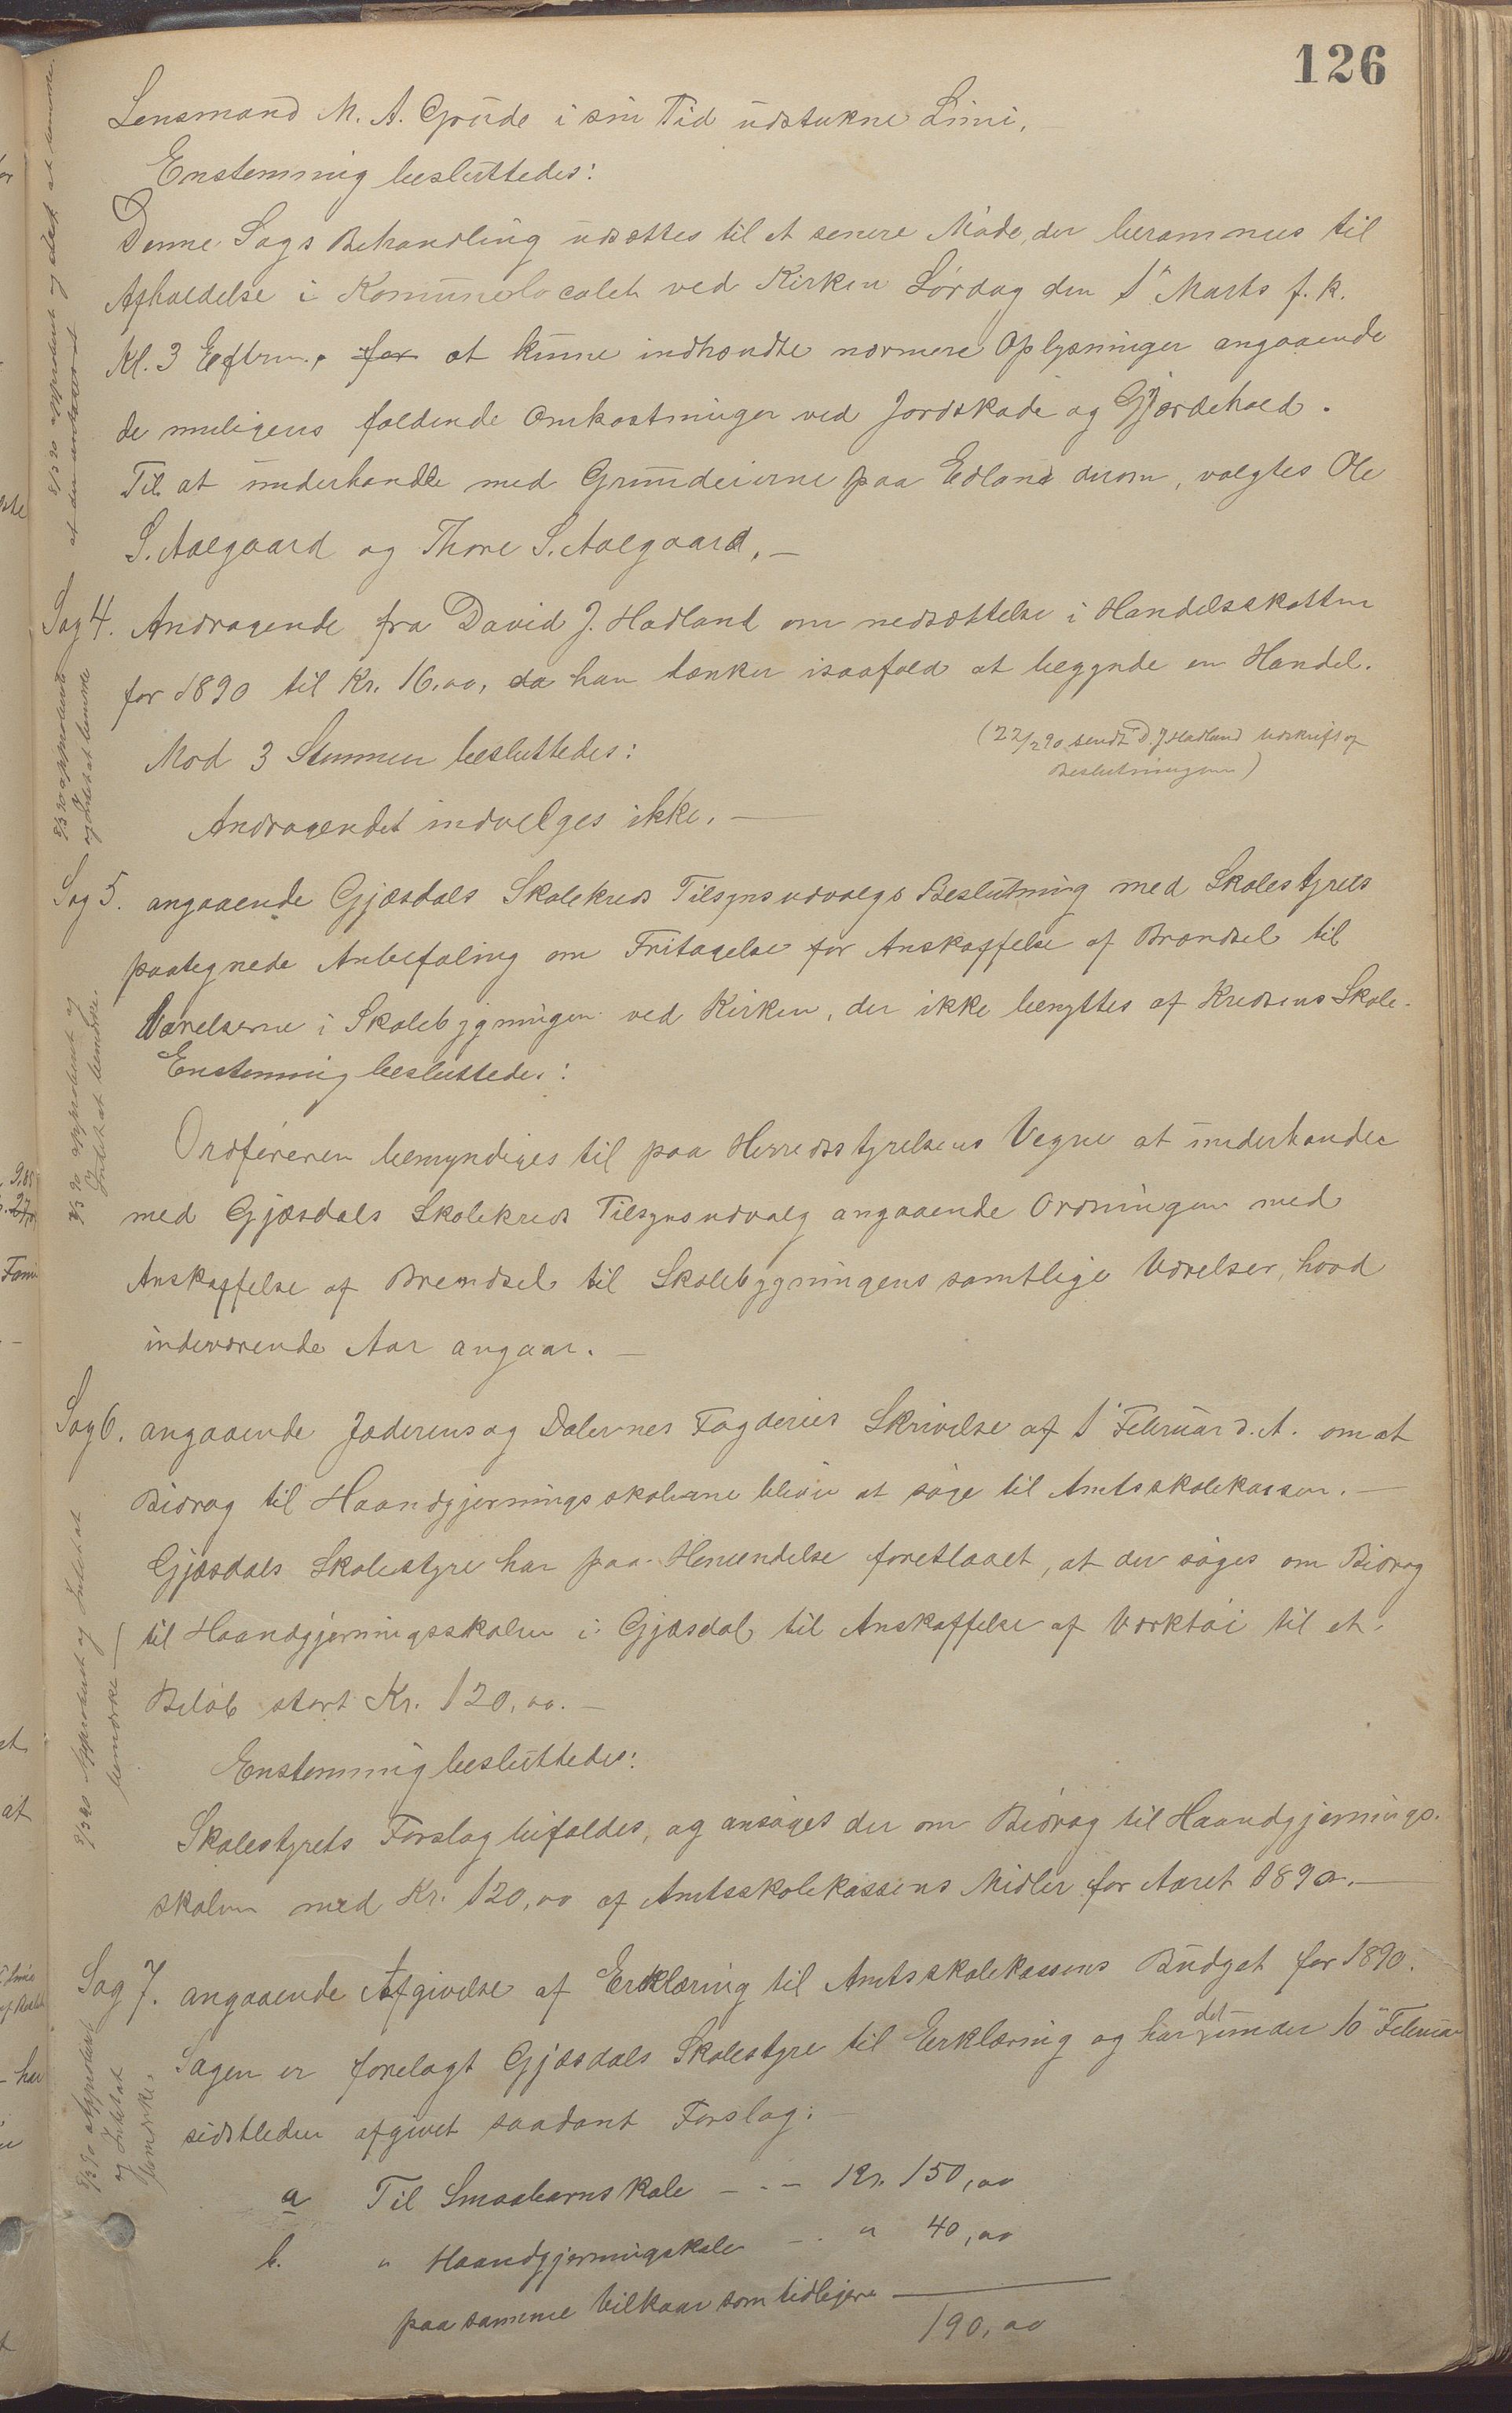 126
Lensmand M. A. Grude i sin Tid udstukne Linie.
Enstemmig besluttedes:
Denne Sags Behandling udsættes til et senere Møde, der berammes til
Afholdelse i Komunelocalet ved Kirken Lørdag den 1ste Marts f. k.
Kl. 3 Efterm., for at kunne indhendte nærmere Oplysninger angaaende
de muligens faldende Omkostninger ved Jordskade og Gjærdehold.
Til at underhandle med Grundeierne paa Edland derom, valgtes Ole
S. Aalgaard og Thore S. Aalgaard. —
Sag 4. Andragende fra David J. Hadland om nedsættelse i Handelsskatten
for 1890 til Kr. 16.00, da han tænker isaafald at begynde en Handel.
(22/2 90 sendt D. J. Hadland Udskrift af
Beslutningen)
Mod 3 Stemmer besluttedes:
Andragendet indvelges ikke. —
Sag 5. angaaende Gjæsdals Skolekreds Tilsynsudvalgs Beslutning med Skolestyrets
paategnede Anbefaling om Fritagelse for Anskaffelse af Brændsel til
Værelserne i Skolebygningen ved Kirken, der ikke benyttes af Kredsens Skole.
Enstemmig besluttedes:
Ordføreren bemyndiges til paa Herredsstyrelsens Vegne at underhandle
med Gjæsdals Skolekreds Tilsynsudvalg angaaende Ordningen med
Anskaffelse af Brændsel til Skolebygningens samtlige Værelser, hvad
indeværende Aar angaar. —
Sag 6. angaaende Jæderens og Dalernes Fogderies Skrivelse af 1ste Februar d. A. om at
Bidrag til Haandgjerningsskolerne bliver at søge til Amtsskolekassen. —
Gjæsdals Skolestyre har paa Henvendelse foreslaaet, at der søges om Bidrag
til Haandgjerningsskolen i Gjæsdal til Anskaffelse af Værktøi til et
Beløb stort Kr. 120,00. —
Enstemmig besluttedes:
Skolestyrets Forslag bifaldes, og ansøges der om Bidrag til Haandgjernings-
skolen med Kr. 120,00 af Amtsskolekassens Midler for Aaret 1890. —
Sag 7. angaaende Afgivelse af Erklæring til Amtsskolekassens Budget for 1890.
Sagen er forelagt Gjæsdals Skolestyre til Erklæring og har det under 10de Februar
sidstleden afgivet saadant Forslag:
a Til Smaabarnskole — . — Kr. 150,00
b. " Haandgjerningskole — . " 40,00
paa samme Vilkaar som tidligere
190,00
8/3 90 approberet og Intet at bemærke.
at den
8/3 90 approberet
og Intet at bemærke
8/3 90 approberet og
Intet at bemærke.
8/3 90 Approberet og Intet at
bemærke —
8/3 90 Approberet
og Intet at
bemærke.